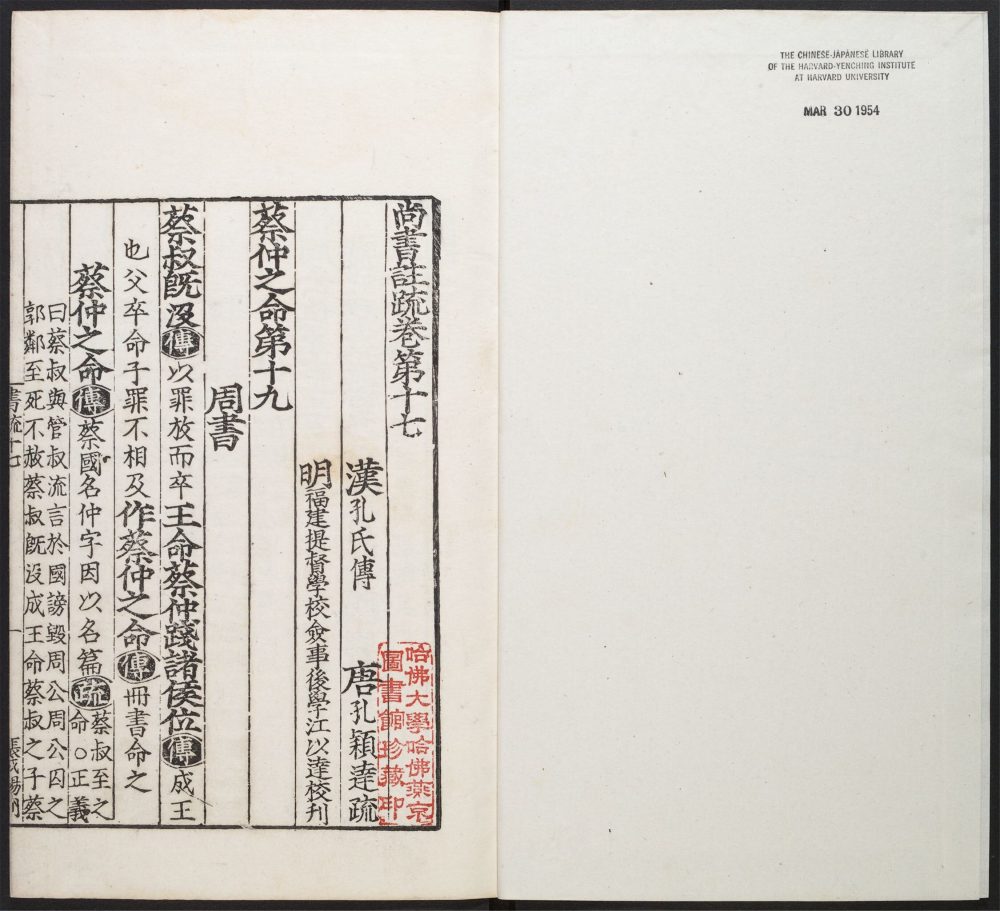 THE CHINESE-JAPANESE LIBRARY
OF THE HARVARD-YENCHING INSTITUTE
AT HARVARD UNIVERSITY
MAR 30 1954
尚書註疏卷第十七
漢孔氏傳 唐孔穎達疏
明福建提督學校僉事後學江以達校刊
蔡仲之命第十九
周書
蔡叔旣沒傳以罪放而卒王命蔡仲踐諸侯位傳成王
也父卒命子罪不相及作蔡仲之命傳冊書命之
蔡仲之命傳蔡國名仲字因以名篇疏蔡叔至之
命○正義
曰蔡叔與管叔流言於國謗毀周公周公囚之
郭鄰至死不赦蔡叔旣沒成王命蔡叔之子蔡
書疏十七
一
哈佛大學哈佛燕京
圖書館珍藏印